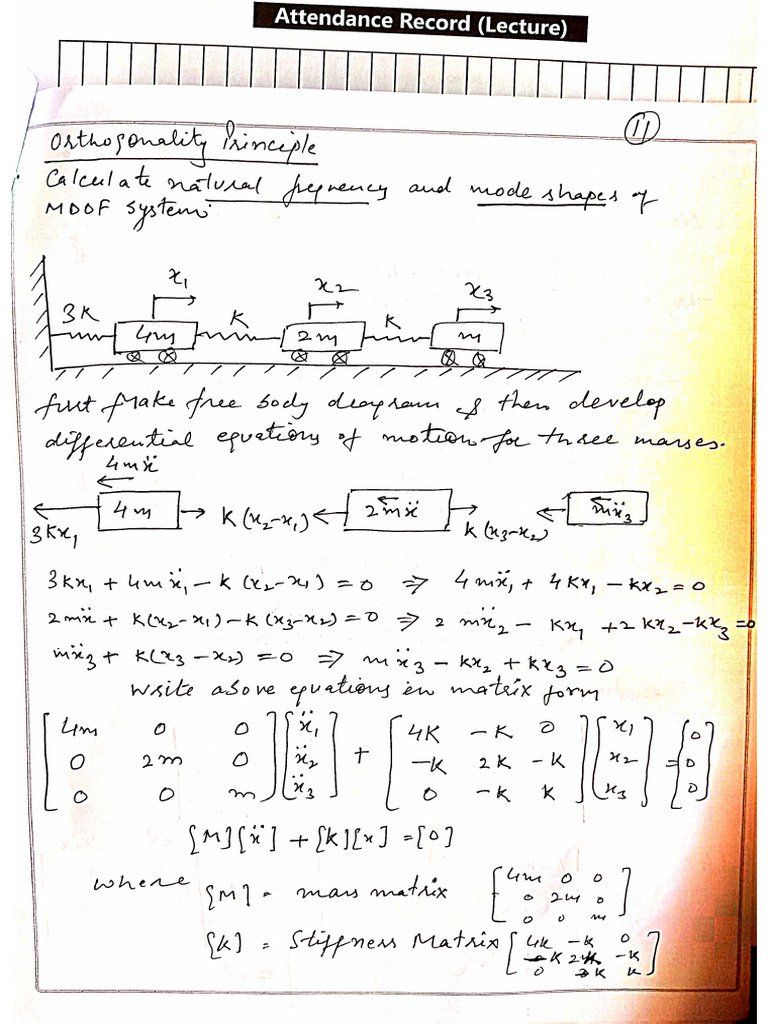 Attendance Record (Lecture)
11
Orthogonality Principle
Calculate natural frequency and mode shapes of
MDOF system:
x₁ x₂ x₃
3K 4m K 2m K m
first Make free body diagram & then develop
differential equations of motion for three masses.
4mẍ
3Kx₁ 4m K(x₂-x₁) 2mẍ K(x₃-x₂) mẍ₃
3Kx₁ + 4mẍ₁ - K(x₂-x₁) = 0 ⇒ 4mẍ₁ + 4Kx₁ - Kx₂ = 0
2mẍ + K(x₂-x₁) - K(x₃-x₂) = 0 ⇒ 2mẍ₂ - Kx₁ + 2Kx₂ - Kx₃ = 0
mẍ₃ + K(x₃-x₂) = 0 ⇒ mẍ₃ - Kx₂ + Kx₃ = 0
Write above equations in matrix form
[4m 0 0] [ẍ₁] [4K -K 0] [x₁] [0]
[0 2m 0] [ẍ₂] + [-K 2K -K] [x₂] = [0]
[0 0 m] [ẍ₃] [0 -K K] [x₃] [0]
[M][ẍ] + [K][x] = [0]
where [M] = mass matrix [4m 0 0
0 2m 0
0 0 m]
[K] = Stiffness Matrix [4K -K 0
-K 2K -K
0 -K K]